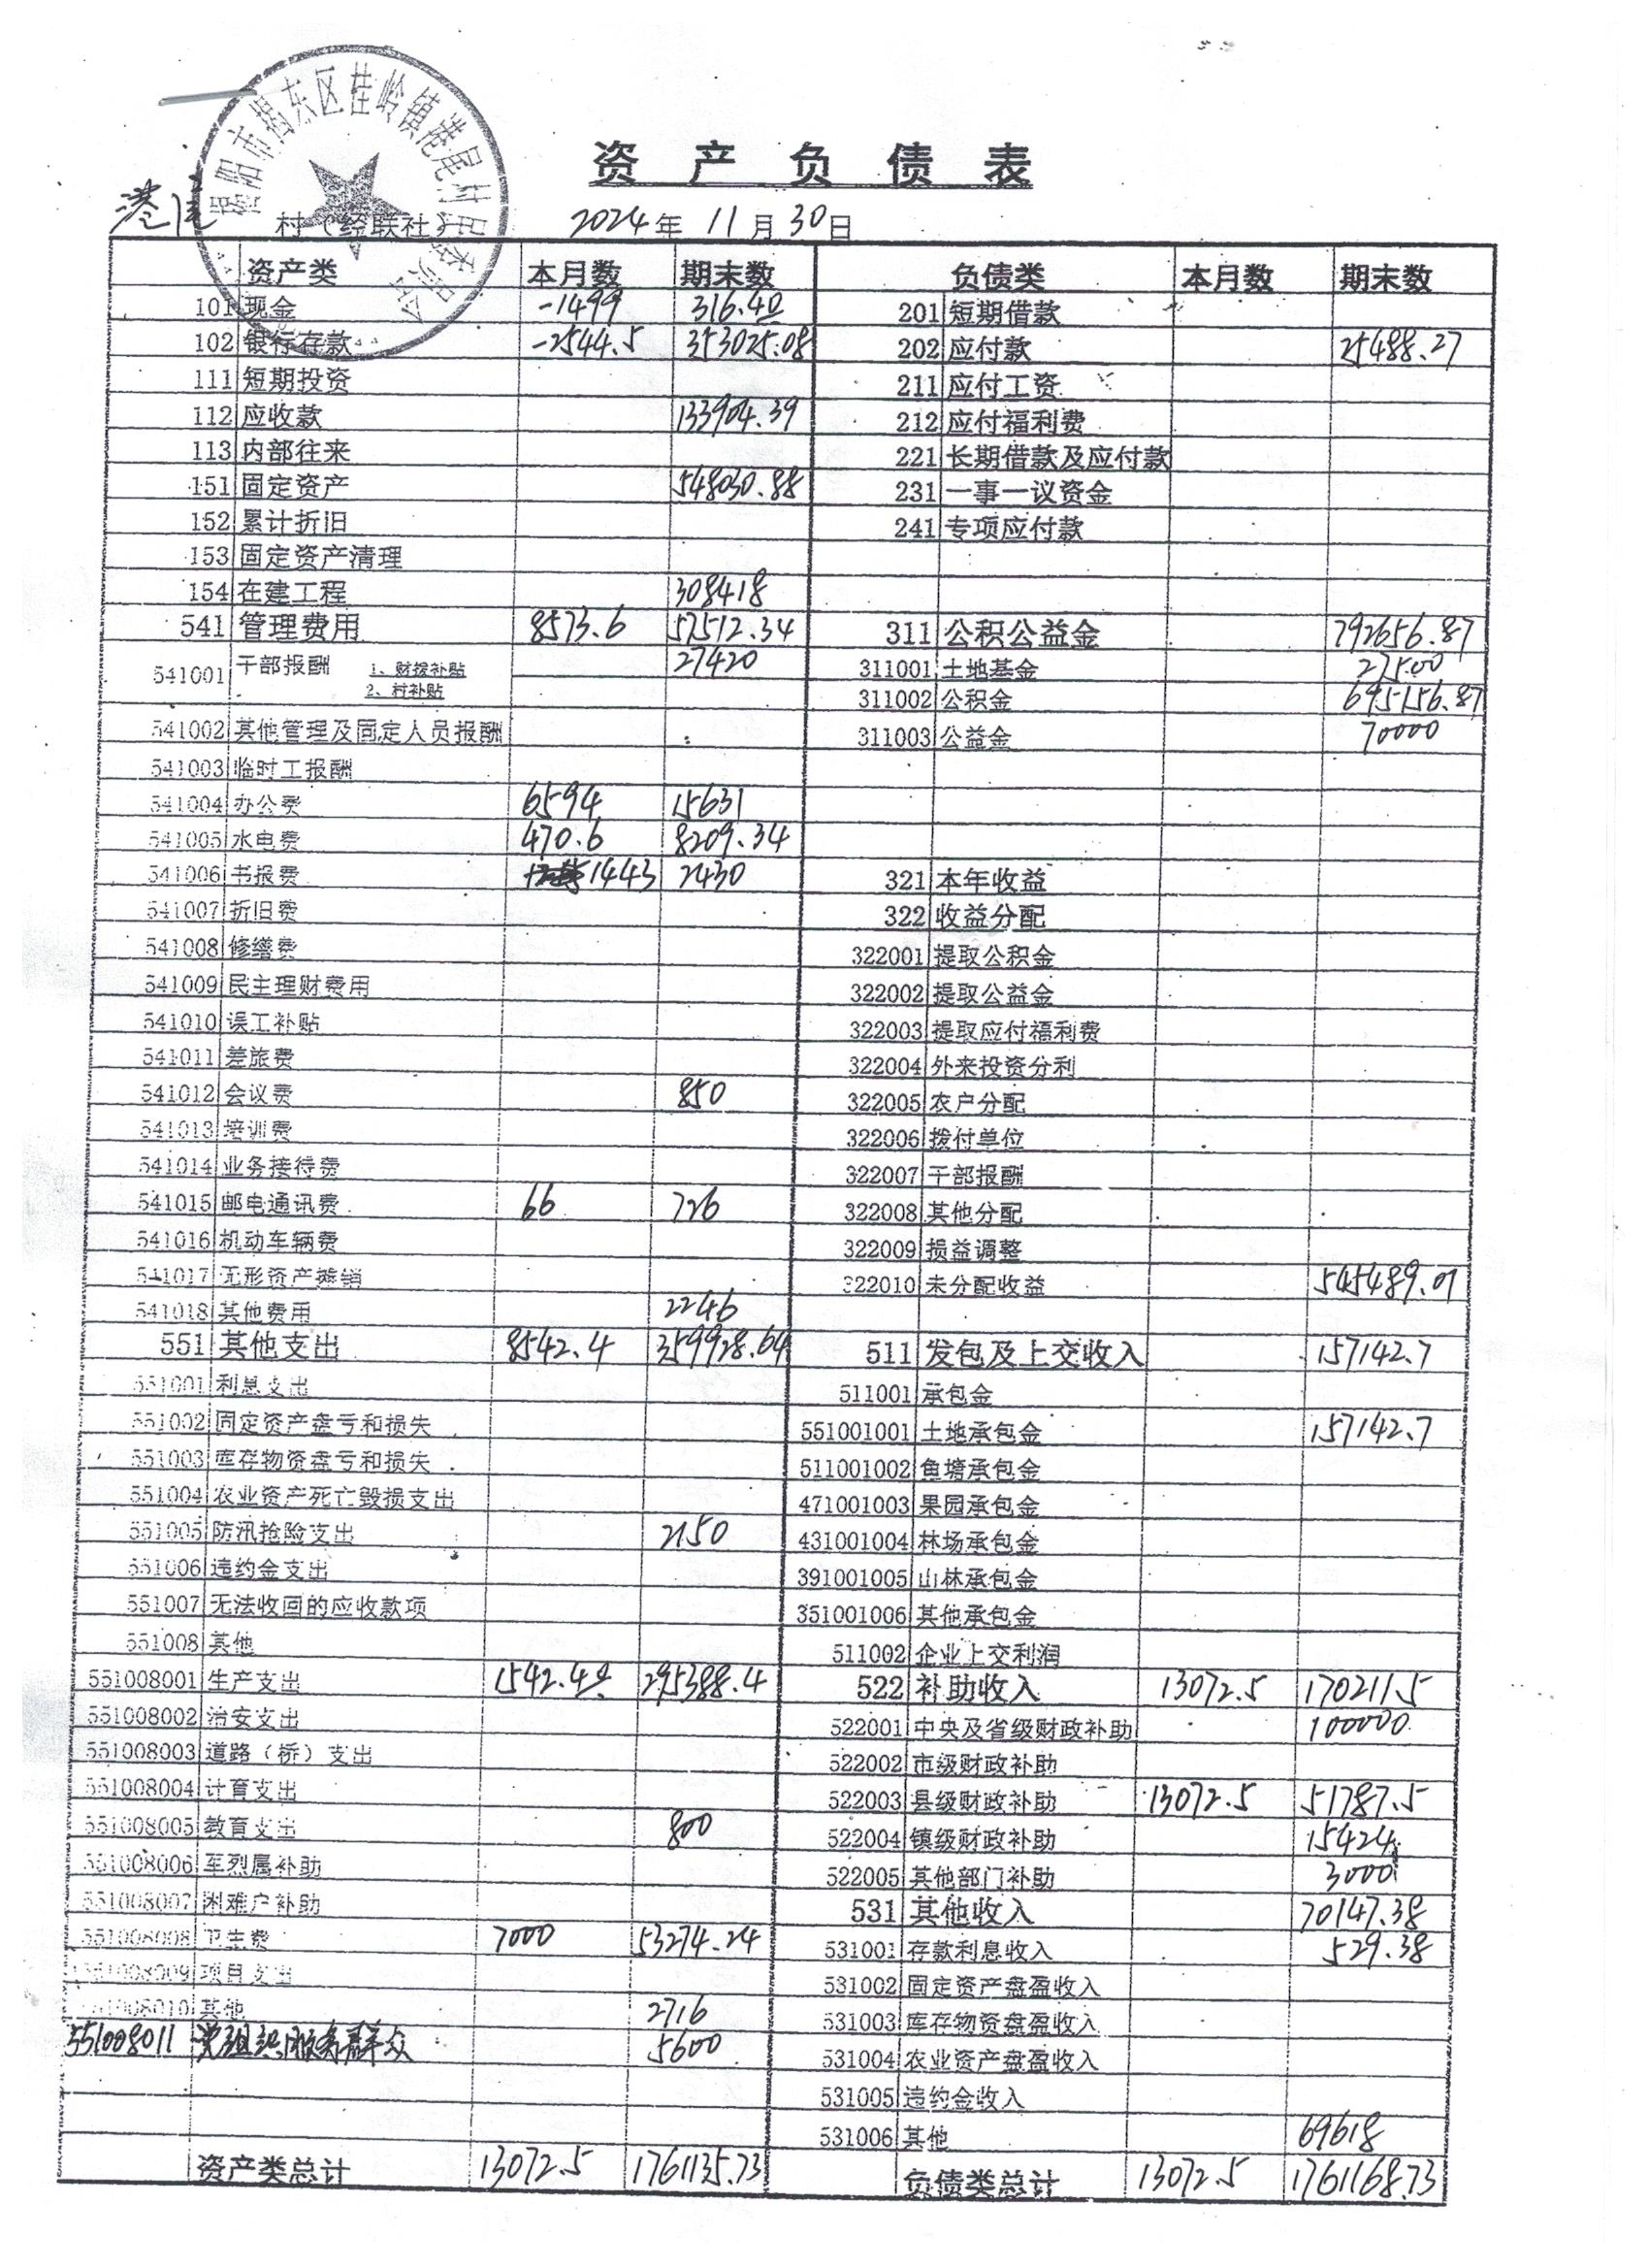 揭阳市揭东区桂岭镇港尾村民委员会
资产负债表
港尾 村（经联社） 2024年 11月30日
资产类 本月数 期末数 负债类 本月数 期末数
101 现金 -1499 316.40 201 短期借款
102 银行存款 -2544.5 353025.08 202 应付款 25488.27
111 短期投资 211 应付工资
112 应收款 133904.39 212 应付福利费
113 内部往来 221 长期借款及应付款
151 固定资产 548030.88 231 一事一议资金
152 累计折旧 241 专项应付款
153 固定资产清理
154 在建工程 308418
541 管理费用 8573.6 57512.34 311 公积公益金 792656.87
541001 干部报酬 1、财拨补贴 27420 311001 土地基金 27500
2、村补贴 311002 公积金 695156.87
541002 其他管理及固定人员报酬 311003 公益金 70000
541003 临时工报酬
541004 办公费 6594 15631
541005 水电费 470.6 8209.34
541006 书报费 1443 2430 321 本年收益
541007 折旧费 322 收益分配
541008 修缮费 322001 提取公积金
541009 民主理财费用 322002 提取公益金
541010 误工补贴 322003 提取应付福利费
541011 差旅费 322004 外来投资分利
541012 会议费 850 322005 农户分配
541013 培训费 322006 拨付单位
541014 业务接待费 322007 干部报酬
541015 邮电通讯费 66 726 322008 其他分配
541016 机动车辆费 322009 损益调整
541017 无形资产摊销 322010 未分配收益 545489.01
541018 其他费用 2246
551 其他支出 8542.4 359928.64 511 发包及上交收入 157142.7
551001 利息支出 511001 承包金
551002 固定资产盘亏和损失 551001001 土地承包金 157142.7
551003 库存物资盘亏和损失 511001002 鱼塘承包金
551004 农业资产死亡毁损支出 471001003 果园承包金
551005 防汛抢险支出 2150 431001004 林场承包金
551006 违约金支出 391001005 山林承包金
551007 无法收回的应收款项 351001006 其他承包金
551008 其他 511002 企业上交利润
551008001 生产支出 1542.4 295388.4 522 补助收入 13072.5 170211.5
551008002 治安支出 522001 中央及省级财政补助 100000
551008003 道路（桥）支出 522002 市级财政补助
551008004 计育支出 522003 县级财政补助 13072.5 51787.5
551008005 教育支出 800 522004 镇级财政补助 15424
551008006 军烈属补助 522005 其他部门补助 3000
551008007 困难户补助 531 其他收入 70147.38
551008008 卫生费 7000 53274.24 531001 存款利息收入 529.38
551008009 项目支出 531002 固定资产盘盈收入
551008010 其他 2716 531003 库存物资盘盈收入
551008011 党组织服务群众 5600 531004 农业资产盘盈收入
531005 违约金收入
531006 其他 69618
资产类总计 13072.5 1761135.73 负债类总计 13072.5 1761168.73